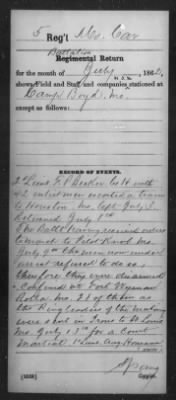 5 Reg't Mo. Cav
Battalion
Regimental Return
for the month of July, 1862,
shows Field and Staff and companies stationed at
Camp Boyd, Mo.
except as follows:
RECORD OF EVENTS.
1 Lieut F. Becker Co H with
42 enlisted men escorted a team
to Houston, Mo. Left July 3.
Returned July 8th
The Batt. having received orders
to march to Pilot Knob Mo.
July 9th the men now under
arrest refused to do so,
therefore they were disarmed
& confined at Fort Wyman
Rolla, Mo. 21 of them as
the Ring leaders of the mutiny
were sent in Irons to St Louis
Mo. July 13th for a Court
Martial. 1 Lieut. Aug.
Copyist.